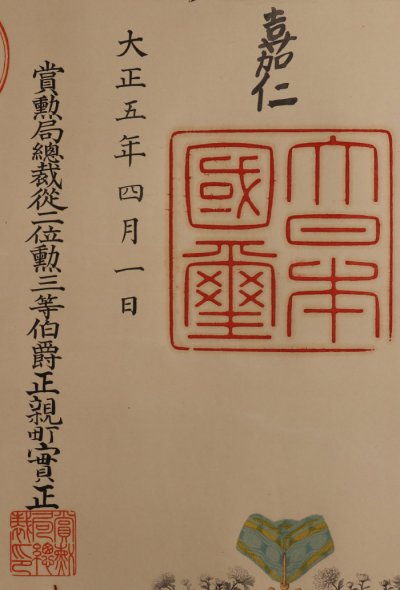 嘉仁
大日本
國璽
大正五年四月一日
賞勲局總裁從二位勲三等伯爵正親町實正
賞勲
局總
裁印